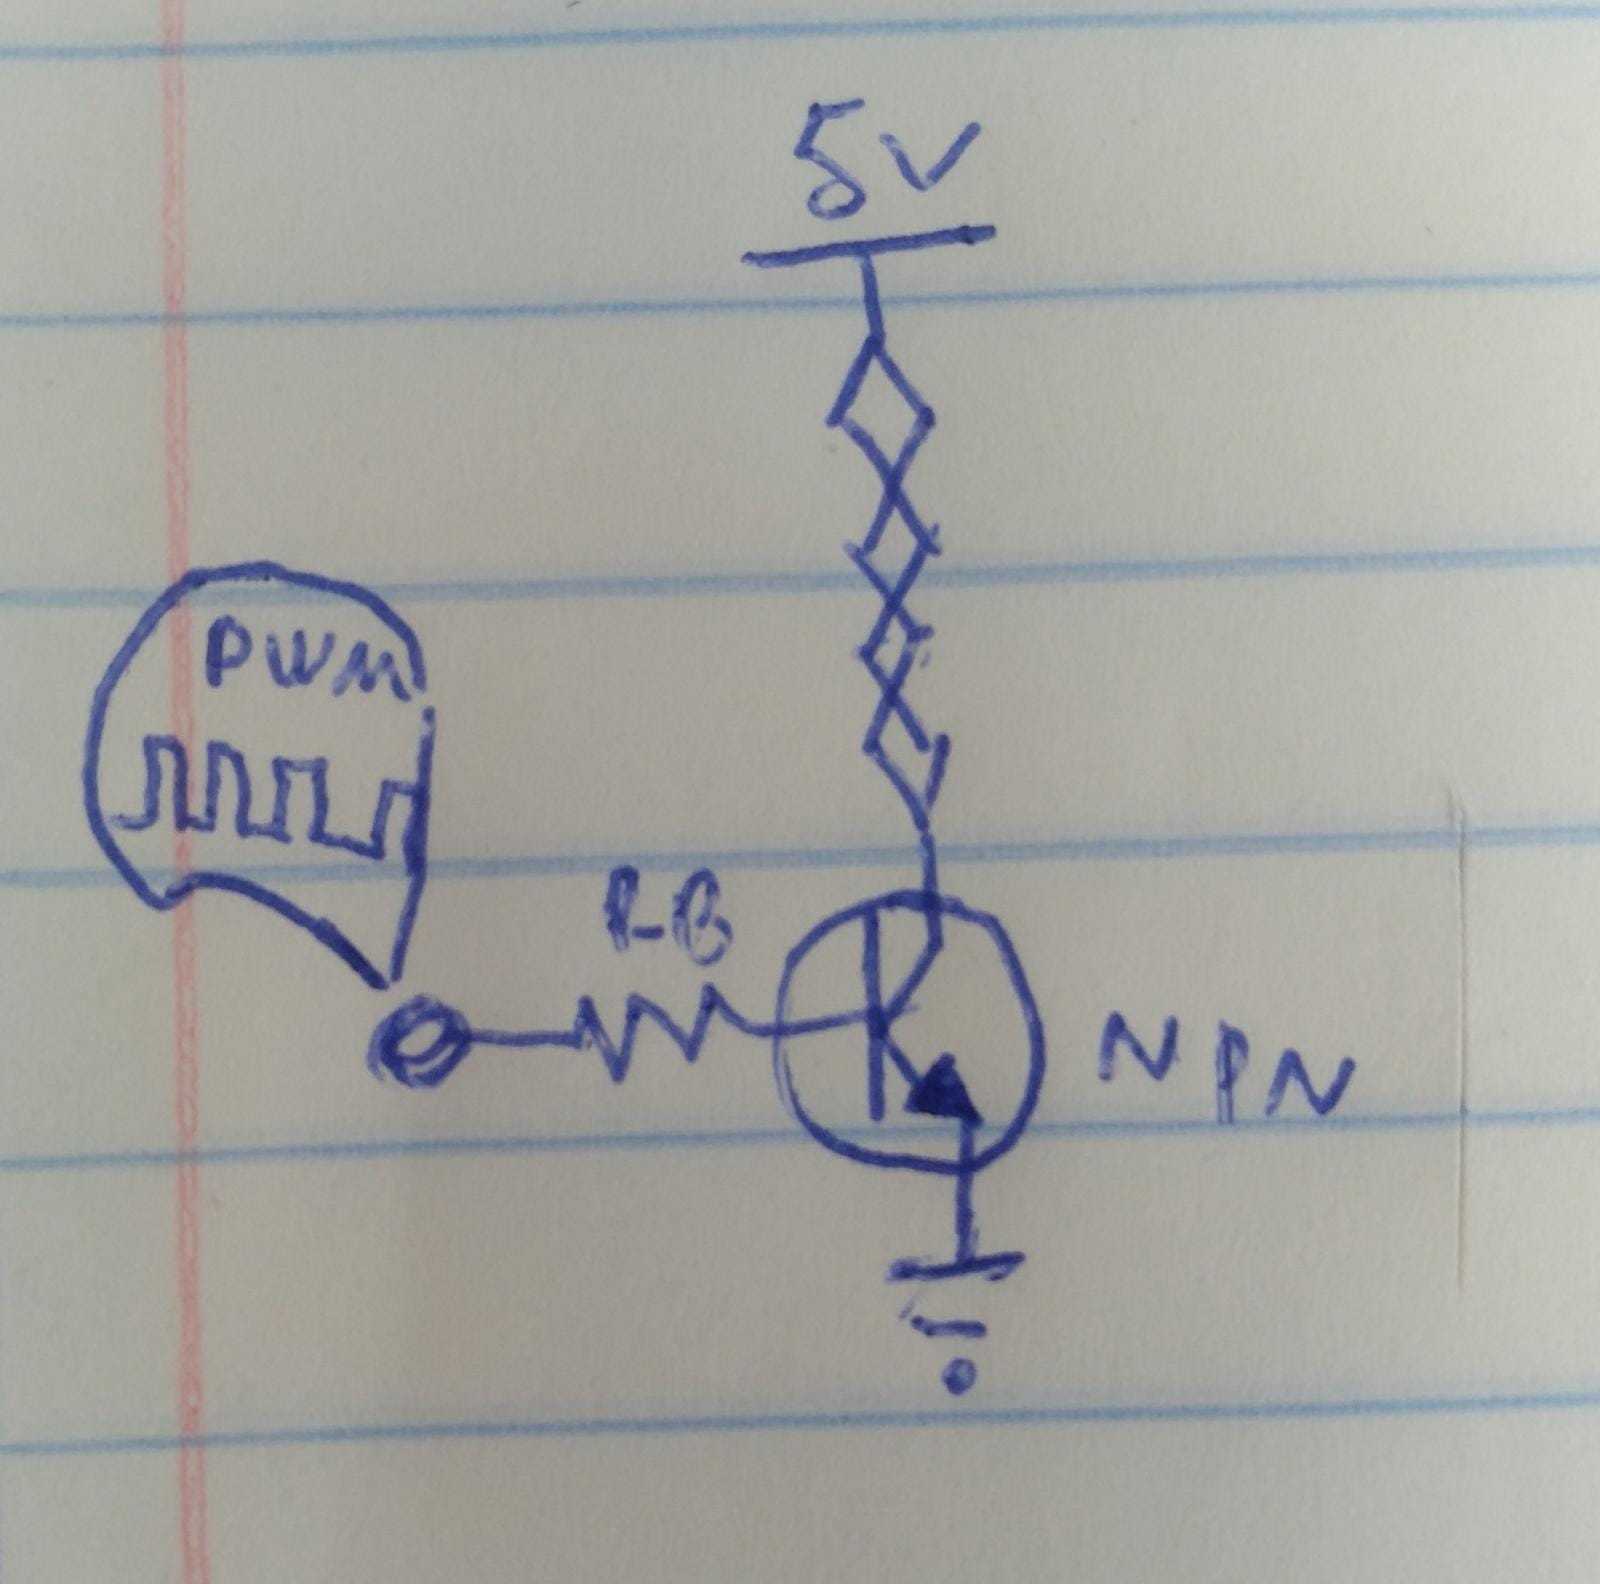 5V
PWM
RB
NPN